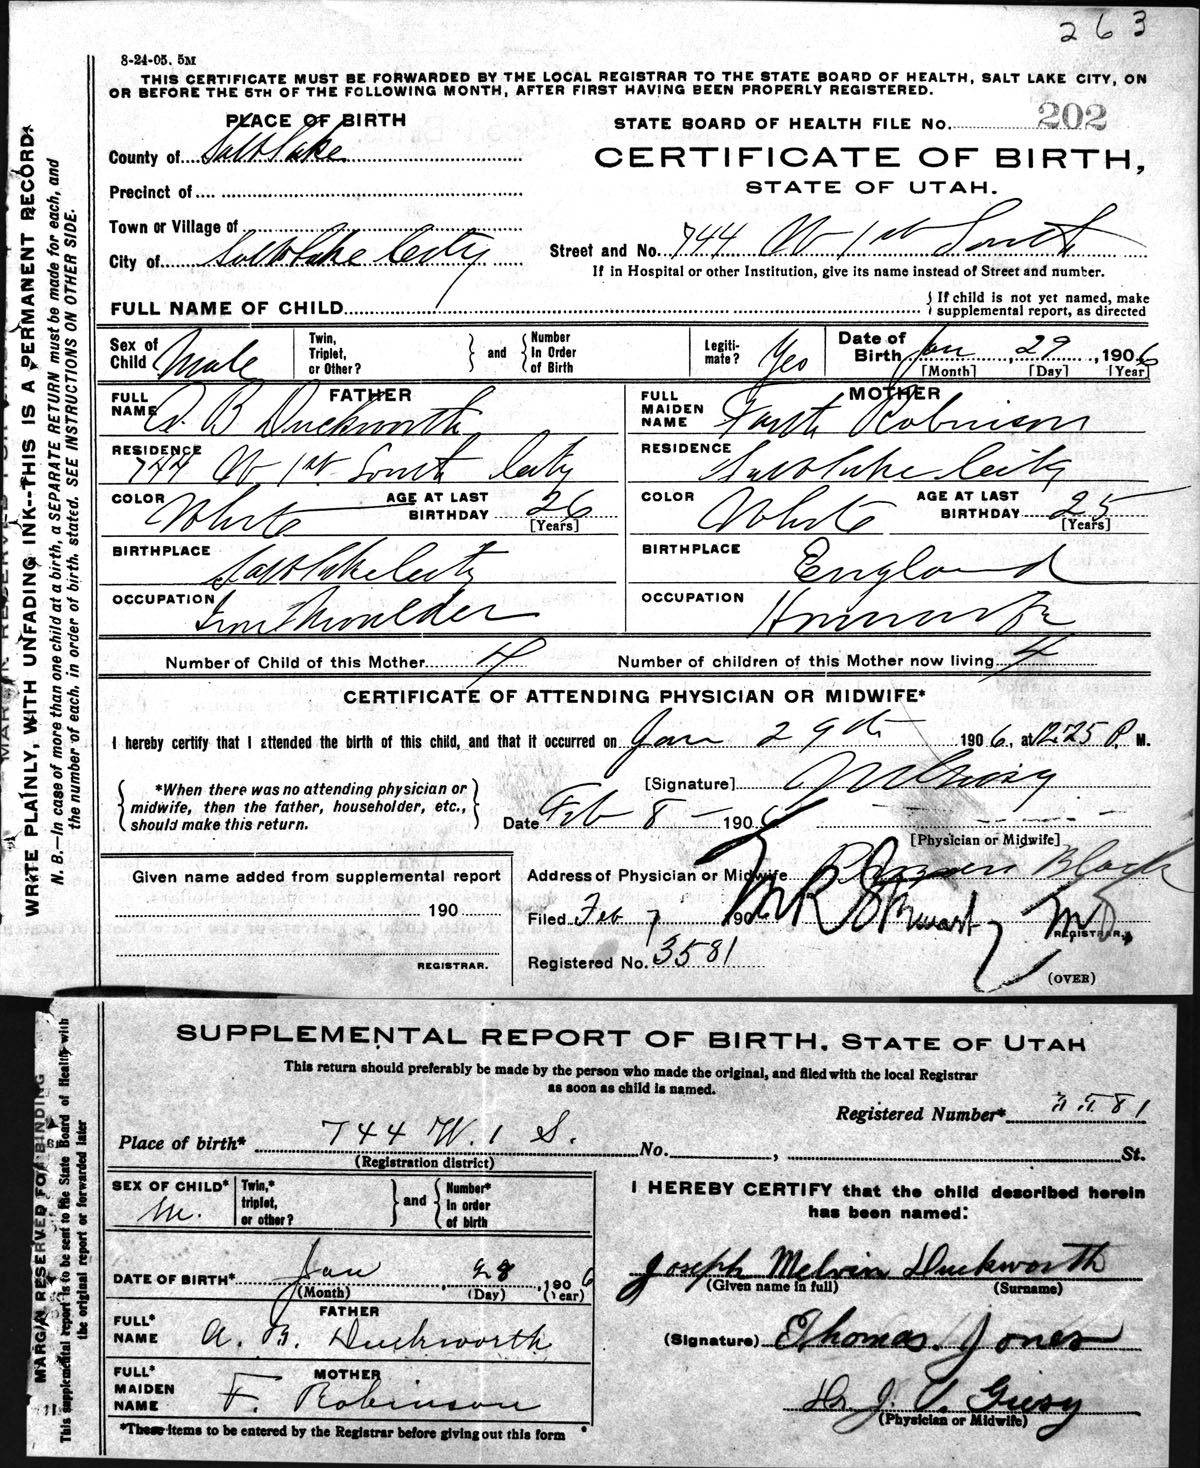 263
8-24-05. 5M
THIS CERTIFICATE MUST BE FORWARDED BY THE LOCAL REGISTRAR TO THE STATE BOARD OF HEALTH, SALT LAKE CITY, ON
OR BEFORE THE 5TH OF THE FOLLOWING MONTH, AFTER FIRST HAVING BEEN PROPERLY REGISTERED.
PLACE OF BIRTH
STATE BOARD OF HEALTH FILE No. 202
County of Salt Lake
CERTIFICATE OF BIRTH,
STATE OF UTAH.
Precinct of
Town or Village of
City of Salt Lake City
Street and No. 744 W 1st South
If in Hospital or other Institution, give its name instead of Street and number.
FULL NAME OF CHILD
If child is not yet named, make
supplemental report, as directed
Sex of Child Male
Twin, Triplet, or Other?
and
Number In Order of Birth
Legiti-mate? Yes
Date of Birth Jan 29, 1906
[Month] [Day] [Year]
FATHER
FULL NAME A. B Duckworth
MOTHER
FULL MAIDEN NAME Robinson
RESIDENCE 744 W 1st South City
RESIDENCE Salt Lake City
COLOR White
AGE AT LAST BIRTHDAY 26 [Years]
COLOR White
AGE AT LAST BIRTHDAY 25 [Years]
BIRTHPLACE Salt Lake City
BIRTHPLACE England
OCCUPATION Iron Moulder
OCCUPATION Housewife
Number of Child of this Mother 4
Number of children of this Mother now living 4
CERTIFICATE OF ATTENDING PHYSICIAN OR MIDWIFE*
I hereby certify that I attended the birth of this child, and that it occurred on Jan 29th 1906, at 12.25 P. M.
*When there was no attending physician or
midwife, then the father, householder, etc.,
should make this return.
[Signature] Giesy
Date Feb 8 - 1906
[Physician or Midwife]
Address of Physician or Midwife Block
Given name added from supplemental report
190
REGISTRAR.
Filed Feb 7 1906 M R Stewart M.D.
REGISTRAR.
Registered No. 3581
(OVER)
WRITE PLAINLY, WITH UNFADING INK--THIS IS A PERMANENT RECORD.
N. B.—In case of more than one child at a birth, a SEPARATE RETURN must be made for each, and
the number of each, in order of birth, stated. SEE INSTRUCTIONS ON OTHER SIDE.
SUPPLEMENTAL REPORT OF BIRTH, STATE OF UTAH
This return should preferably be made by the person who made the original, and filed with the local Registrar
as soon as child is named.
Registered Number* 3581
Place of birth* 744 W. 1 S. No. , St.
(Registration district)
SEX OF CHILD* M.
Twin,* triplet, or other?
and
Number* in order of birth
I HEREBY CERTIFY that the child described herein
has been named:
DATE OF BIRTH* Jan, 28, 1906
(Month) (Day) (Year)
Joseph Melvin Duckworth
(Given name in full) (Surname)
FATHER
FULL* NAME A. B. Duckworth
(Signature) E Thomas Jones
MOTHER
FULL* MAIDEN NAME F. Robinson
Dr J. V. Giesy
(Physician or Midwife)
*These items to be entered by the Registrar before giving out this form
MARGIN RESERVED FOR BINDING
This supplemental report is to be sent to the State Board of Health with
the original report or forwarded later